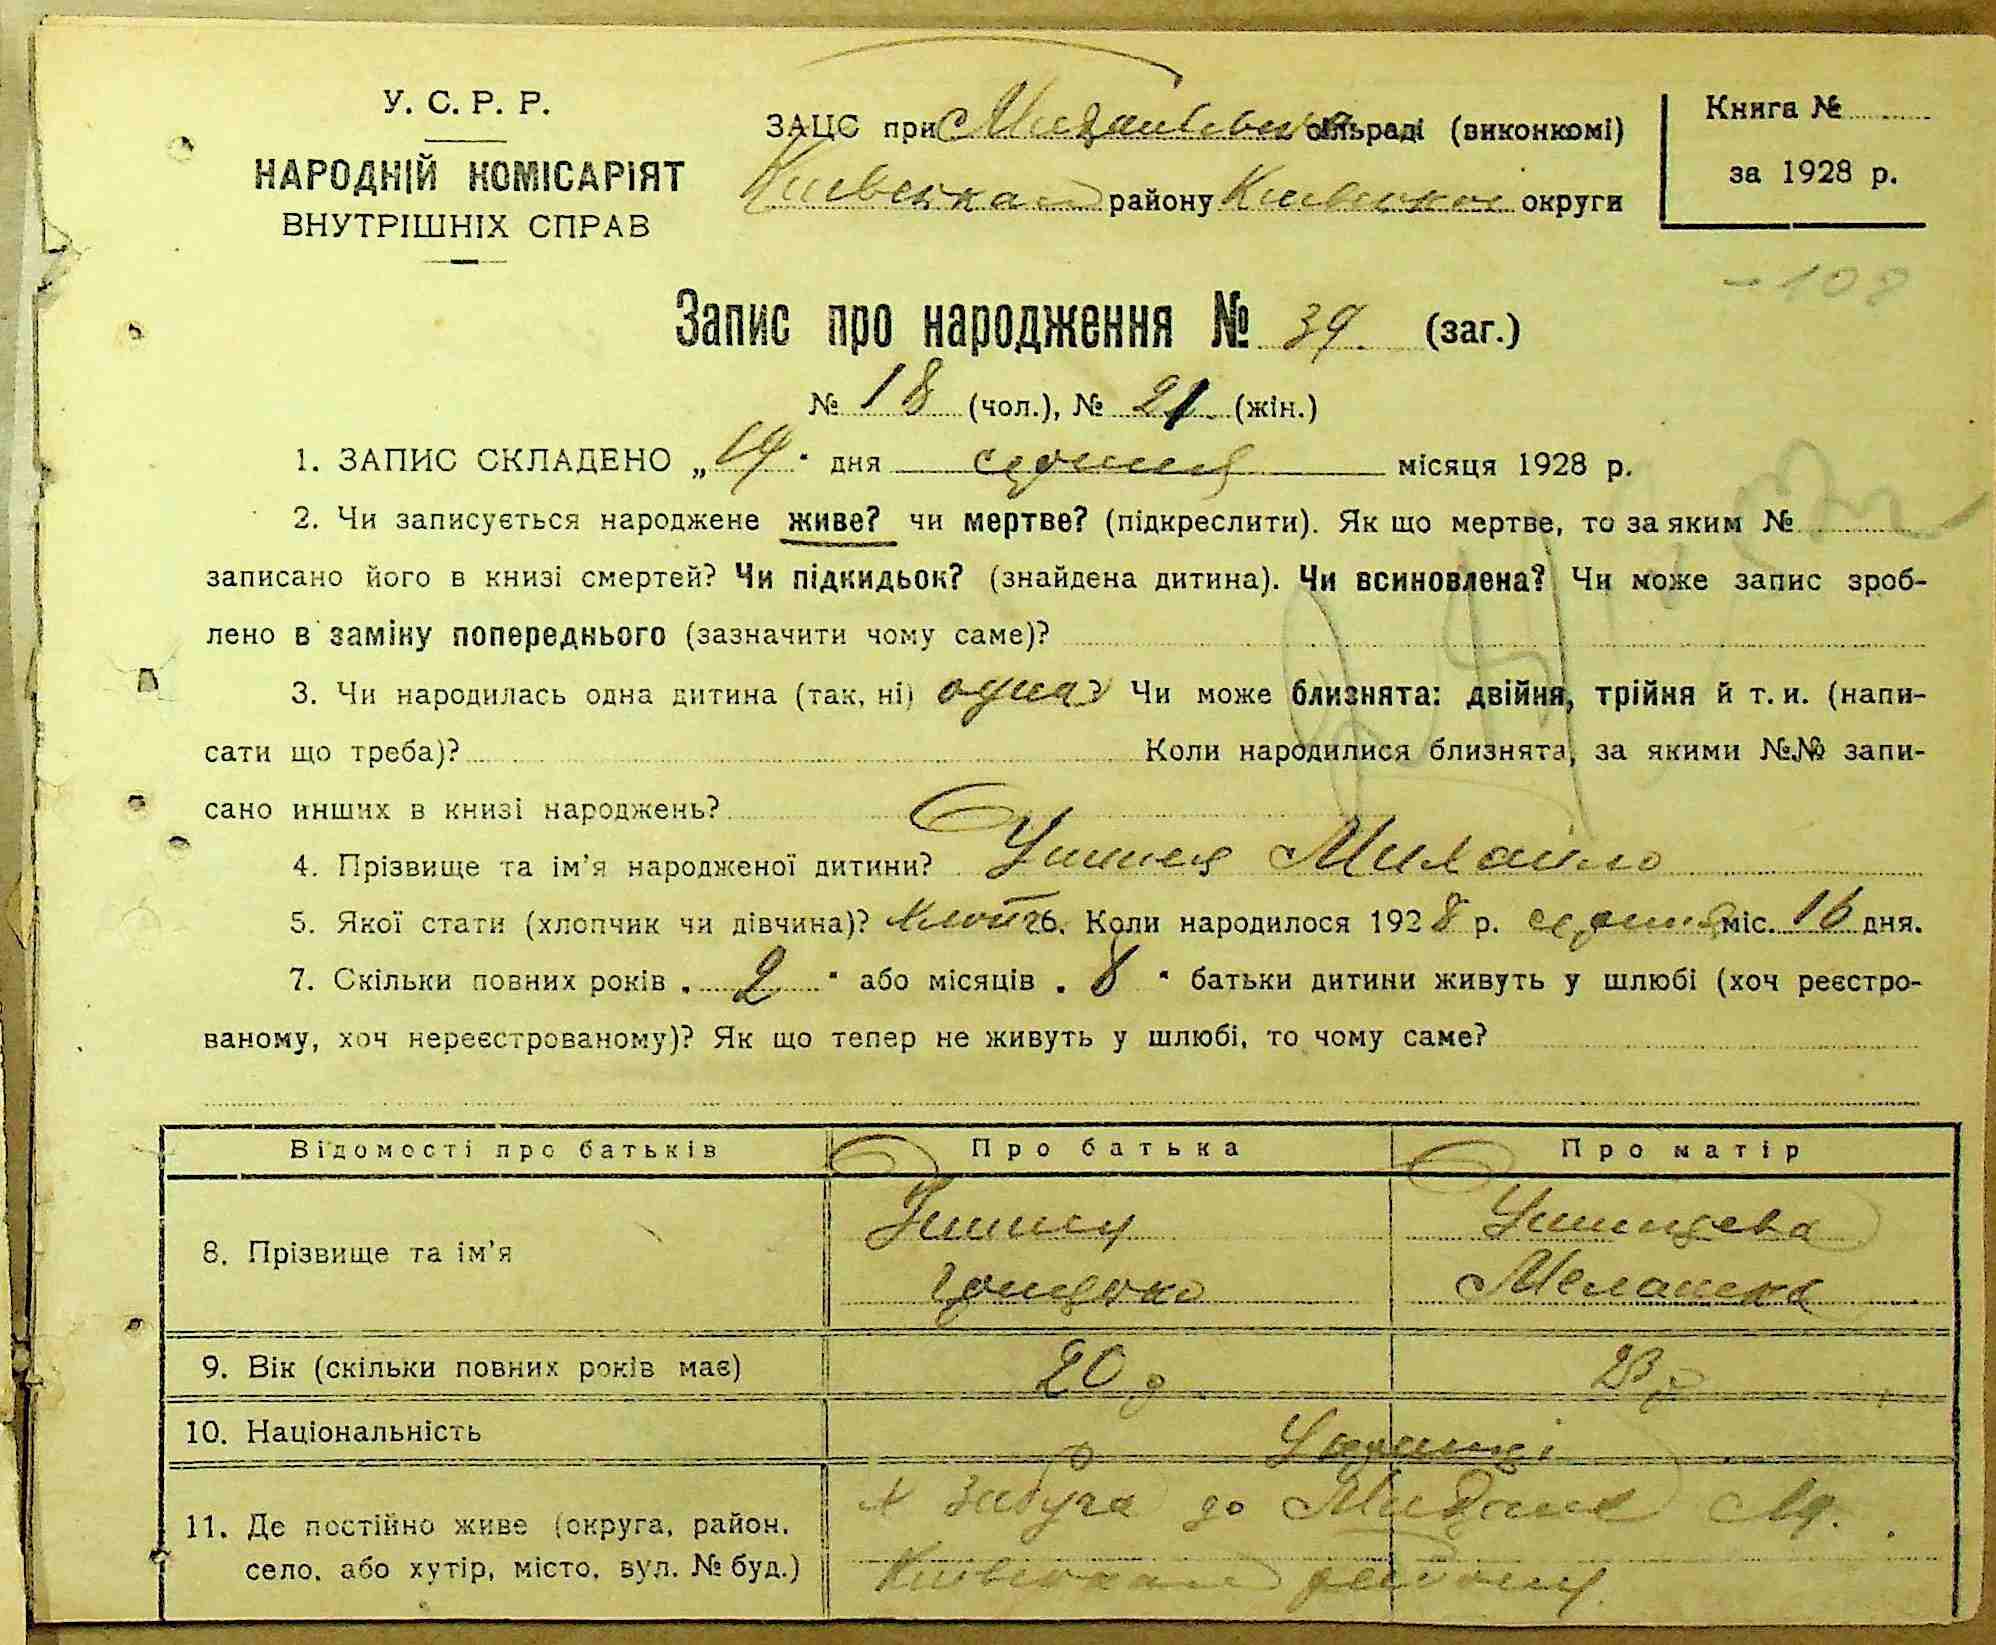 У. С. Р. Р.
НАРОДНІЙ КОМІСАРІЯТ
ВНУТРІШНІХ СПРАВ
ЗАЦС при сільраді (виконкомі)
району Київської округи
Книга №
за 1928 р.
- 108
Запис про народження № 39. (заг.)
№ 18 (чол.), № 21. (жін.)
1. ЗАПИС СКЛАДЕНО „19" дня серпня місяця 1928 р.
2. Чи записується народжене живе? чи мертве? (підкреслити). Як що мертве, то за яким №
записано його в книзі смертей? Чи підкидьок? (знайдена дитина). Чи всиновлена? Чи може запис зроб-
лено в заміну попереднього (зазначити чому саме)?
3. Чи народилась одна дитина (так, ні) одна Чи може близнята: двійня, трійня й т. и. (напи-
сати що треба)? Коли народилися близнята, за якими №№ запи-
сано инших в книзі народжень?
4. Прізвище та ім'я народженої дитини? Михайло
5. Якої стати (хлопчик чи дівчина)? Коли народилося 1928 р. серпня міс. 16 дня.
7. Скільки повних років „ 2 " або місяців „ 8 " батьки дитини живуть у шлюбі (хоч реєстро-
ваному, хоч нереєстрованому)? Як що тепер не живуть у шлюбі, то чому саме?
Відомості про батьків Про батька Про матір
8. Прізвище та ім'я
Грицько Мелашка
9. Вік (скільки повних років має) 20 р 23 р
10. Національність Українці
11. Де постійно живе (округа, район, х Забуга до
село, або хутір, місто, вул. № буд.) району